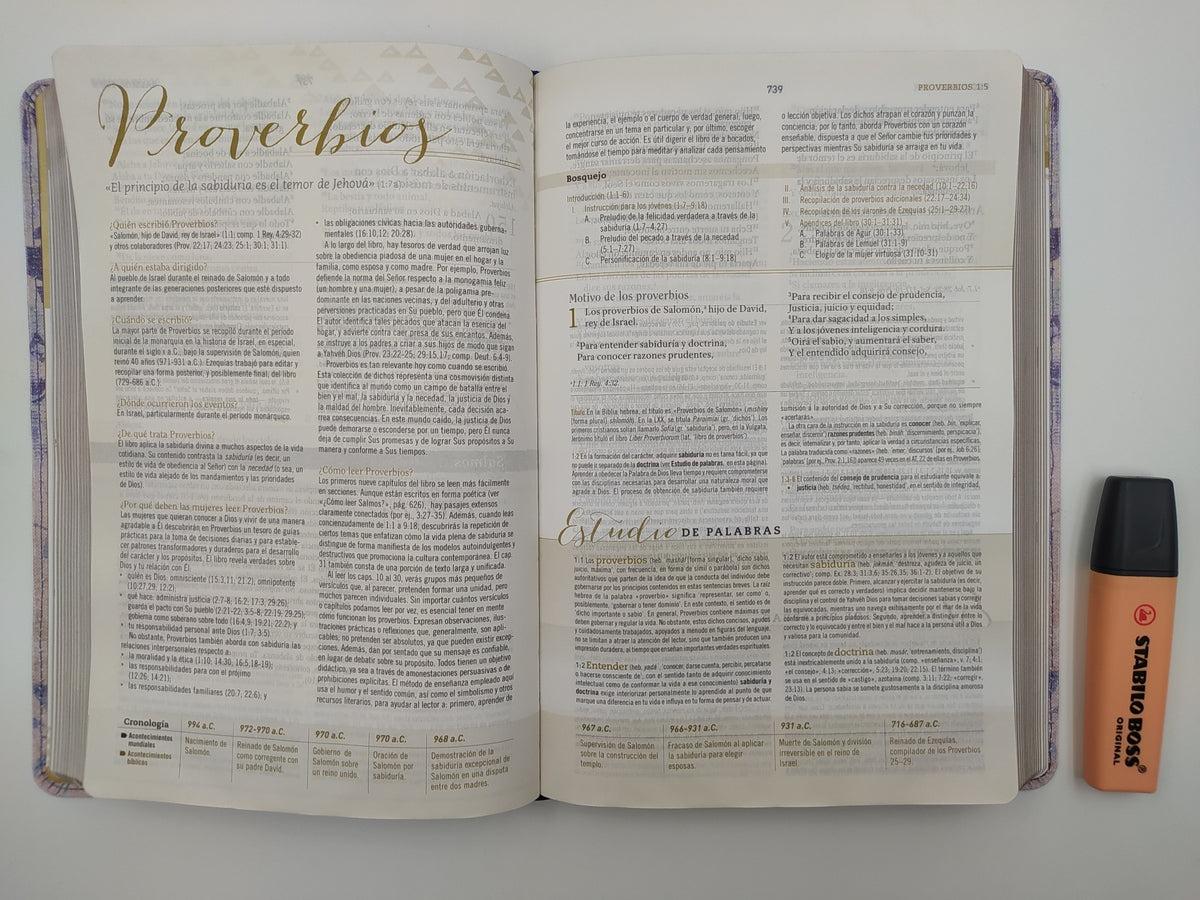 Proverbios
«El principio de la sabiduría es el temor de Jehová» (1:7a).
¿Quién escribió Proverbios?
«Salomón, hijo de David, rey de Israel» (1:1; comp. 1 Rey. 4:29-32)
y otros colaboradores (Prov. 22:17; 24:23; 25:1; 30:1; 31:1).
¿A quién estaba dirigido?
Al pueblo de Israel durante el reinado de Salomón y a todo
integrante de las generaciones posteriores que esté dispuesto
a aprender.
¿Cuándo se escribió?
La mayor parte de Proverbios se recopiló durante el período
inicial de la monarquía en la historia de Israel, en especial,
durante el siglo X a.C., bajo la supervisión de Salomón, quien
reinó 40 años (971-931 a.C.). Ezequías trabajó para editar y
recopilar una forma posterior, y posiblemente final, del libro
(729-686 a.C.).
¿Dónde ocurrieron los eventos?
En Israel, particularmente durante el período monárquico.
¿De qué trata Proverbios?
El libro aplica la sabiduría divina a muchos aspectos de la vida
cotidiana. Su contenido contrasta la sabiduría (es decir, un
estilo de vida de obediencia al Señor) con la necedad (o sea, un
estilo de vida alejado de los mandamientos y las prioridades
de Dios).
¿Por qué deben las mujeres leer Proverbios?
Las mujeres que quieran conocer a Dios y vivir de una manera
agradable a Él descubrirán en Proverbios un tesoro de guías
prácticas para la toma de decisiones diarias y para estable-
cer patrones transformadores y duraderos para el desarrollo
del carácter y los propósitos. El libro revela verdades sobre
Dios y tu relación con Él:
• quién es Dios: omnisciente (15:3,11; 21:2), omnipotente
(10:27,29; 12:2);
• qué hace: administra justicia (2:7-8; 16:2; 17:3; 29:26);
guarda el pacto con Su pueblo (2:21-22; 3:5-8; 22:19; 29:25);
gobierna como soberano sobre todo (16:4,9; 19:21; 22:2); y
• tu responsabilidad personal ante Dios (1:7; 3:5).
No obstante, Proverbios también aborda con sabiduría las
relaciones interpersonales respecto a:
• la moralidad y la ética (1:10; 14:30; 16:5,18-19);
• las responsabilidades para con el prójimo
(12:26; 14:21);
• las responsabilidades familiares (20:7; 22:6); y
• las obligaciones cívicas hacia las autoridades guberna-
mentales (16:10,12; 20:28).
A lo largo del libro, hay tesoros de verdad que arrojan luz
sobre la obediencia piadosa de una mujer en el hogar y la
familia, como esposa y como madre. Por ejemplo, Proverbios
defiende la norma del Señor respecto a la monogamia feliz
(un hombre y una mujer), a pesar de la poligamia pre-
dominante en las naciones vecinas, y del adulterio y otras
perversiones practicadas en Su pueblo, pero que Él condena.
El autor identifica tales pecados que atacan la esencia del
hogar, y advierte contra caer presa de sus encantos. Además,
se instruye a los padres a criar a sus hijos de modo que sigan
a Yahvéh Dios (Prov. 23:22-25; 29:15,17; comp. Deut. 6:4-9).
Proverbios es tan relevante hoy como cuando se escribió.
Esta colección de dichos representa una cosmovisión distinta
que identifica al mundo como un campo de batalla entre el
bien y el mal, la sabiduría y la necedad, la justicia de Dios y
la maldad del hombre. Inevitablemente, cada decisión aca-
rrea consecuencias. En este mundo caído, la justicia de Dios
puede demorarse o esconderse por un tiempo, pero Él nunca
deja de cumplir Sus promesas y de lograr Sus propósitos a Su
manera y conforme a Sus tiempos.
¿Cómo leer Proverbios?
Los primeros nueve capítulos del libro se leen más fácilmente
en secciones. Aunque están escritos en forma poética (ver
«¿Cómo leer Salmos?», pág. 626), hay pasajes extensos
claramente conectados (por ej., 3:27-35). Además, cuando leas
concienzudamente de 1:1 a 9:18, descubrirás la repetición de
ciertos temas que enfatizan cómo la vida plena de sabiduría se
distingue de forma manifiesta de los modelos autoindulgentes y
destructivos que promociona la cultura contemporánea. El cap.
31 también consta de una porción de texto larga y unificada.
Al leer los caps. 10 al 30, verás grupos más pequeños de
versículos que, al parecer, pretenden formar una unidad, pero
muchos parecen individuales. Sin importar cuántos versículos
o capítulos podamos leer por vez, es esencial tener en mente
cómo funcionan los proverbios. Expresan observaciones, ilus-
traciones prácticas o reflexiones que, generalmente, son apli-
cables; no pretenden ser absolutos, ya que pueden existir excep-
ciones. Además, dan por sentado que su mensaje es confiable,
en lugar de debatir sobre su propósito. Todos tienen un objetivo
didáctico, ya sea a través de amonestaciones persuasivas o de
prohibiciones explícitas. El método de enseñanza empleado aquí
usa el humor y el sentido común, así como el simbolismo y otros
recursos literarios, para ayudar al lector a: primero, aprender de
Cronología
Acontecimientos
mundiales
Acontecimientos
bíblicos
994 a.C.
Nacimiento de
Salomón.
972-970 a.C.
Reinado de Salomón
como corregente con
su padre David.
970 a.C.
Gobierno de
Salomón sobre
un reino unido.
970 a.C.
Oración de
Salomón por
sabiduría.
968 a.C.
Demostración de la
sabiduría excepcional de
Salomón en una disputa
entre dos madres.
739
PROVERBIOS 1:5
la experiencia, el ejemplo o el cuerpo de verdad general; luego,
concentrarse en un tema en particular y, por último, escoger
el mejor curso de acción. Es útil digerir el libro de a bocados,
tomándose el tiempo para meditar y analizar cada pensamiento
o lección objetiva. Los dichos atrapan el corazón y punzan la
conciencia; por lo tanto, aborda Proverbios con un corazón
enseñable, dispuesta a que el Señor cambie tus prioridades y
perspectivas mientras Su sabiduría se arraiga en tu vida.
Bosquejo
Introducción (1:1-6)
I. Instrucción para los jóvenes (1:7–9:18)
A. Preludio de la felicidad verdadera a través de la
sabiduría (1:7–4:27)
B. Preludio del pecado a través de la necedad
(5:1–7:27)
C. Personificación de la sabiduría (8:1–9:18)
II. Análisis de la sabiduría contra la necedad (10:1–22:16)
III. Recopilación de proverbios adicionales (22:17–24:34)
IV. Recopilación de los varones de Ezequías (25:1–29:27)
V. Apéndices del libro (30:1–31:31)
A. Palabras de Agur (30:1-33)
B. Palabras de Lemuel (31:1-9)
C. Elogio de la mujer virtuosa (31:10-31)
Motivo de los proverbios
1 Los proverbios de Salomón,ª hijo de David,
rey de Israel.
²Para entender sabiduría y doctrina,
Para conocer razones prudentes,
³Para recibir el consejo de prudencia,
Justicia, juicio y equidad;
⁴Para dar sagacidad a los simples,
Y a los jóvenes inteligencia y cordura.
⁵Oirá el sabio, y aumentará el saber,
Y el entendido adquirirá consejo,
ª1.1: 1 Rey. 4:32.
Título En la Biblia hebrea, el título es «Proverbios de Salomón» (mishley
[forma plural] shálomoh). En la LXX, se titula Paroimiai (gr. 'dichos'). Los
primeros cristianos solían llamarlo Sofía (gr. 'sabiduría'), pero, en la Vulgata,
Jerónimo tituló el libro Liber Proverbiorum (lat. 'libro de proverbios').
1:2 En la formación del carácter, adquirir sabiduría no es tarea fácil, ya
que no puede ir separada de la doctrina (ver Estudio de palabras, en esta página).
Aprender a obedecer la Palabra de Dios lleva tiempo y requiere comprometerse
con las disciplinas necesarias para desarrollar una naturaleza moral que
agrade a Dios. El proceso de obtención de sabiduría también requiere
sumisión a la autoridad de Dios y a Su corrección, porque no siempre
«acertarás».
La otra cara de la instrucción es conocer (heb. bin, 'explicar,
enseñar, discernir') razones prudentes (heb. binah, 'discernimiento, perspicacia'),
es decir, internalizar y, por tanto, aplicar la verdad a circunstancias específicas.
La palabra traducida como «razones» (heb. 'emer, 'discursos') (por ej., Job 6:26),
'palabras' (por ej., Prov. 2:1,16) aparece 49 veces en el AT, 22 de ellas en Proverbios.
1:3-6 El contenido del consejo de prudencia para el estudiante equivale a:
• justicia (heb. tsedeq, 'rectitud, honestidad', en el sentido de integridad,
Estudio DE PALABRAS
1:1 Los proverbios (heb. mashal [forma singular], 'dicho sabio,
juicio, máxima', con frecuencia, en forma de símil o parábola) son dichos
autoritativos que parten de la idea de que la conducta del individuo debe
gobernarse por los principios contenidos en estas sentencias breves. La raíz
hebrea de la palabra «proverbio» significa 'representar, ser como' o,
posiblemente, 'gobernar o tener dominio'. En este contexto, el sentido es de
'dicho importante o sabio'. En general, Proverbios contiene máximas que
deben gobernar y regular la vida. No obstante, estos dichos concisos, agudos
y cuidadosamente trabajados, apoyados a menudo en figuras del lenguaje,
no se limitan a atraer la atención del lector, sino que también producen una
impresión duradera, al tiempo que enseñan importantes verdades espirituales.
1:2 Entender (heb. yada', 'conocer, darse cuenta, percibir, percatarse
o hacerse consciente de', con el sentido tanto de adquirir conocimiento
intelectual como de conformar la vida a ese conocimiento) sabiduría y
doctrina exige interiorizar personalmente lo aprendido al punto de que
marque una diferencia en tu vida e influya en tu forma de pensar y de actuar.
1:2 El autor está comprometido a enseñarles a los jóvenes y a aquellos que
necesitan sabiduría (heb. jokmáh, 'destreza, agudeza de juicio, un
correctivo'; comp. Ex. 28:3; 31:3,6; 35:26,35; 36:1-2). El objetivo de su
instrucción permanece. Primero, alcanzar y ejercitar la sabiduría (es decir,
aprender qué es correcto y verdadero) implica decidir mantenerse bajo la
disciplina y el control de Yahvéh Dios para tomar decisiones sabias y corregir
las equivocadas, mientras uno navega exitosamente por el mar de la vida
conforme a principios piadosos. Segundo, aprender a distinguir entre lo
correcto y lo equivocado y entre el bien y el mal hace a la persona útil a Dios
y valiosa para la comunidad.
1:2 El concepto de doctrina (heb. musár, 'entrenamiento, disciplina')
está inextricablemente unido a la sabiduría (comp. «enseñanza», v. 7; 4:1;
«el consejo», 4:13; «corrección», 5:23; 19:20; 22:15). El término también
se usa en el sentido de «castigo», azotaina (comp. 3:11; 7:22; «corregir»,
23:13). La persona sabia se somete gustosamente a la disciplina amorosa
de Dios.
967 a.C.
Supervisión de Salomón
sobre la construcción del
templo.
966-931 a.C.
Fracaso de Salomón al aplicar
la sabiduría para elegir
esposas.
931 a.C.
Muerte de Salomón y división
irreversible en el reino de
Israel.
716-687 a.C.
Reinado de Ezequías,
compilador de los Proverbios
25–29.
STABILO BOSS®
ORIGINAL